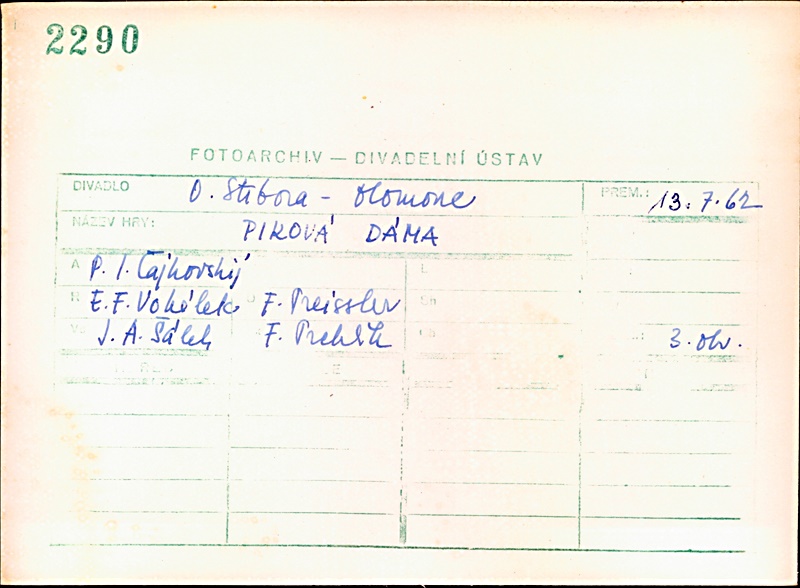 2290
FOTOARCHIV — DIVADELNÍ ÚSTAV
DIVADLO O. Stibora - Olomouc PREM.: 13.7.62
NÁZEV HRY: PIKOVÁ DÁMA
A P. I. Čajkovskij L
H E. F. Vokálek F. Preissler
J. A. Šálek F. 3. obr.